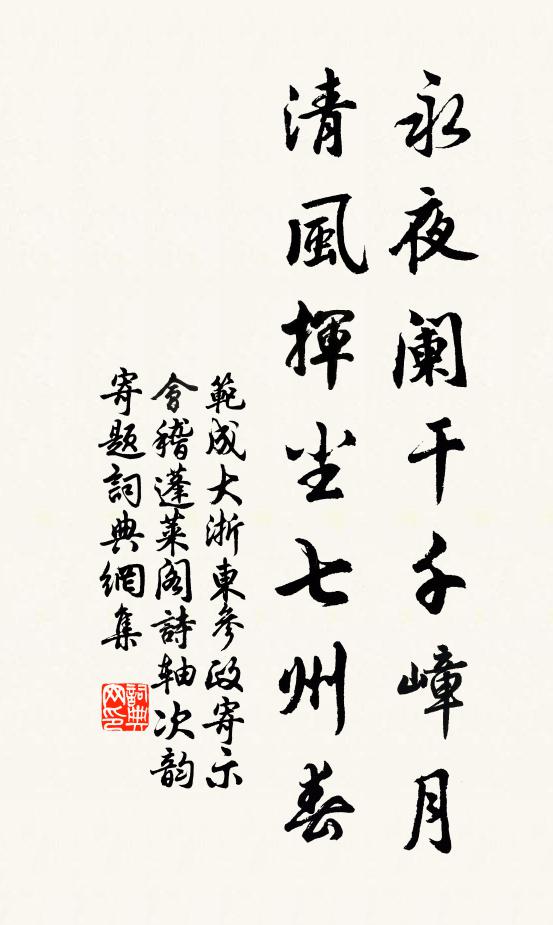 永夜阑干千嶂月
清風揮坐七州春
範成大浙東參政寄示
會稽蓬萊閣詩軸次韵
寄題詞典網集
詞典网印